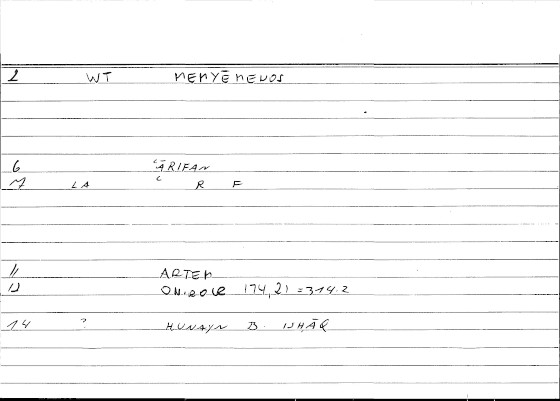 2 WT MEMYĒMENOS
6 ʿĀRIFAN
7 LA ʿ R F
11 ARTEM
12 ONIROCR 174,21 = 314.2
14 ? ḤUNAYN B. ISḤĀQ